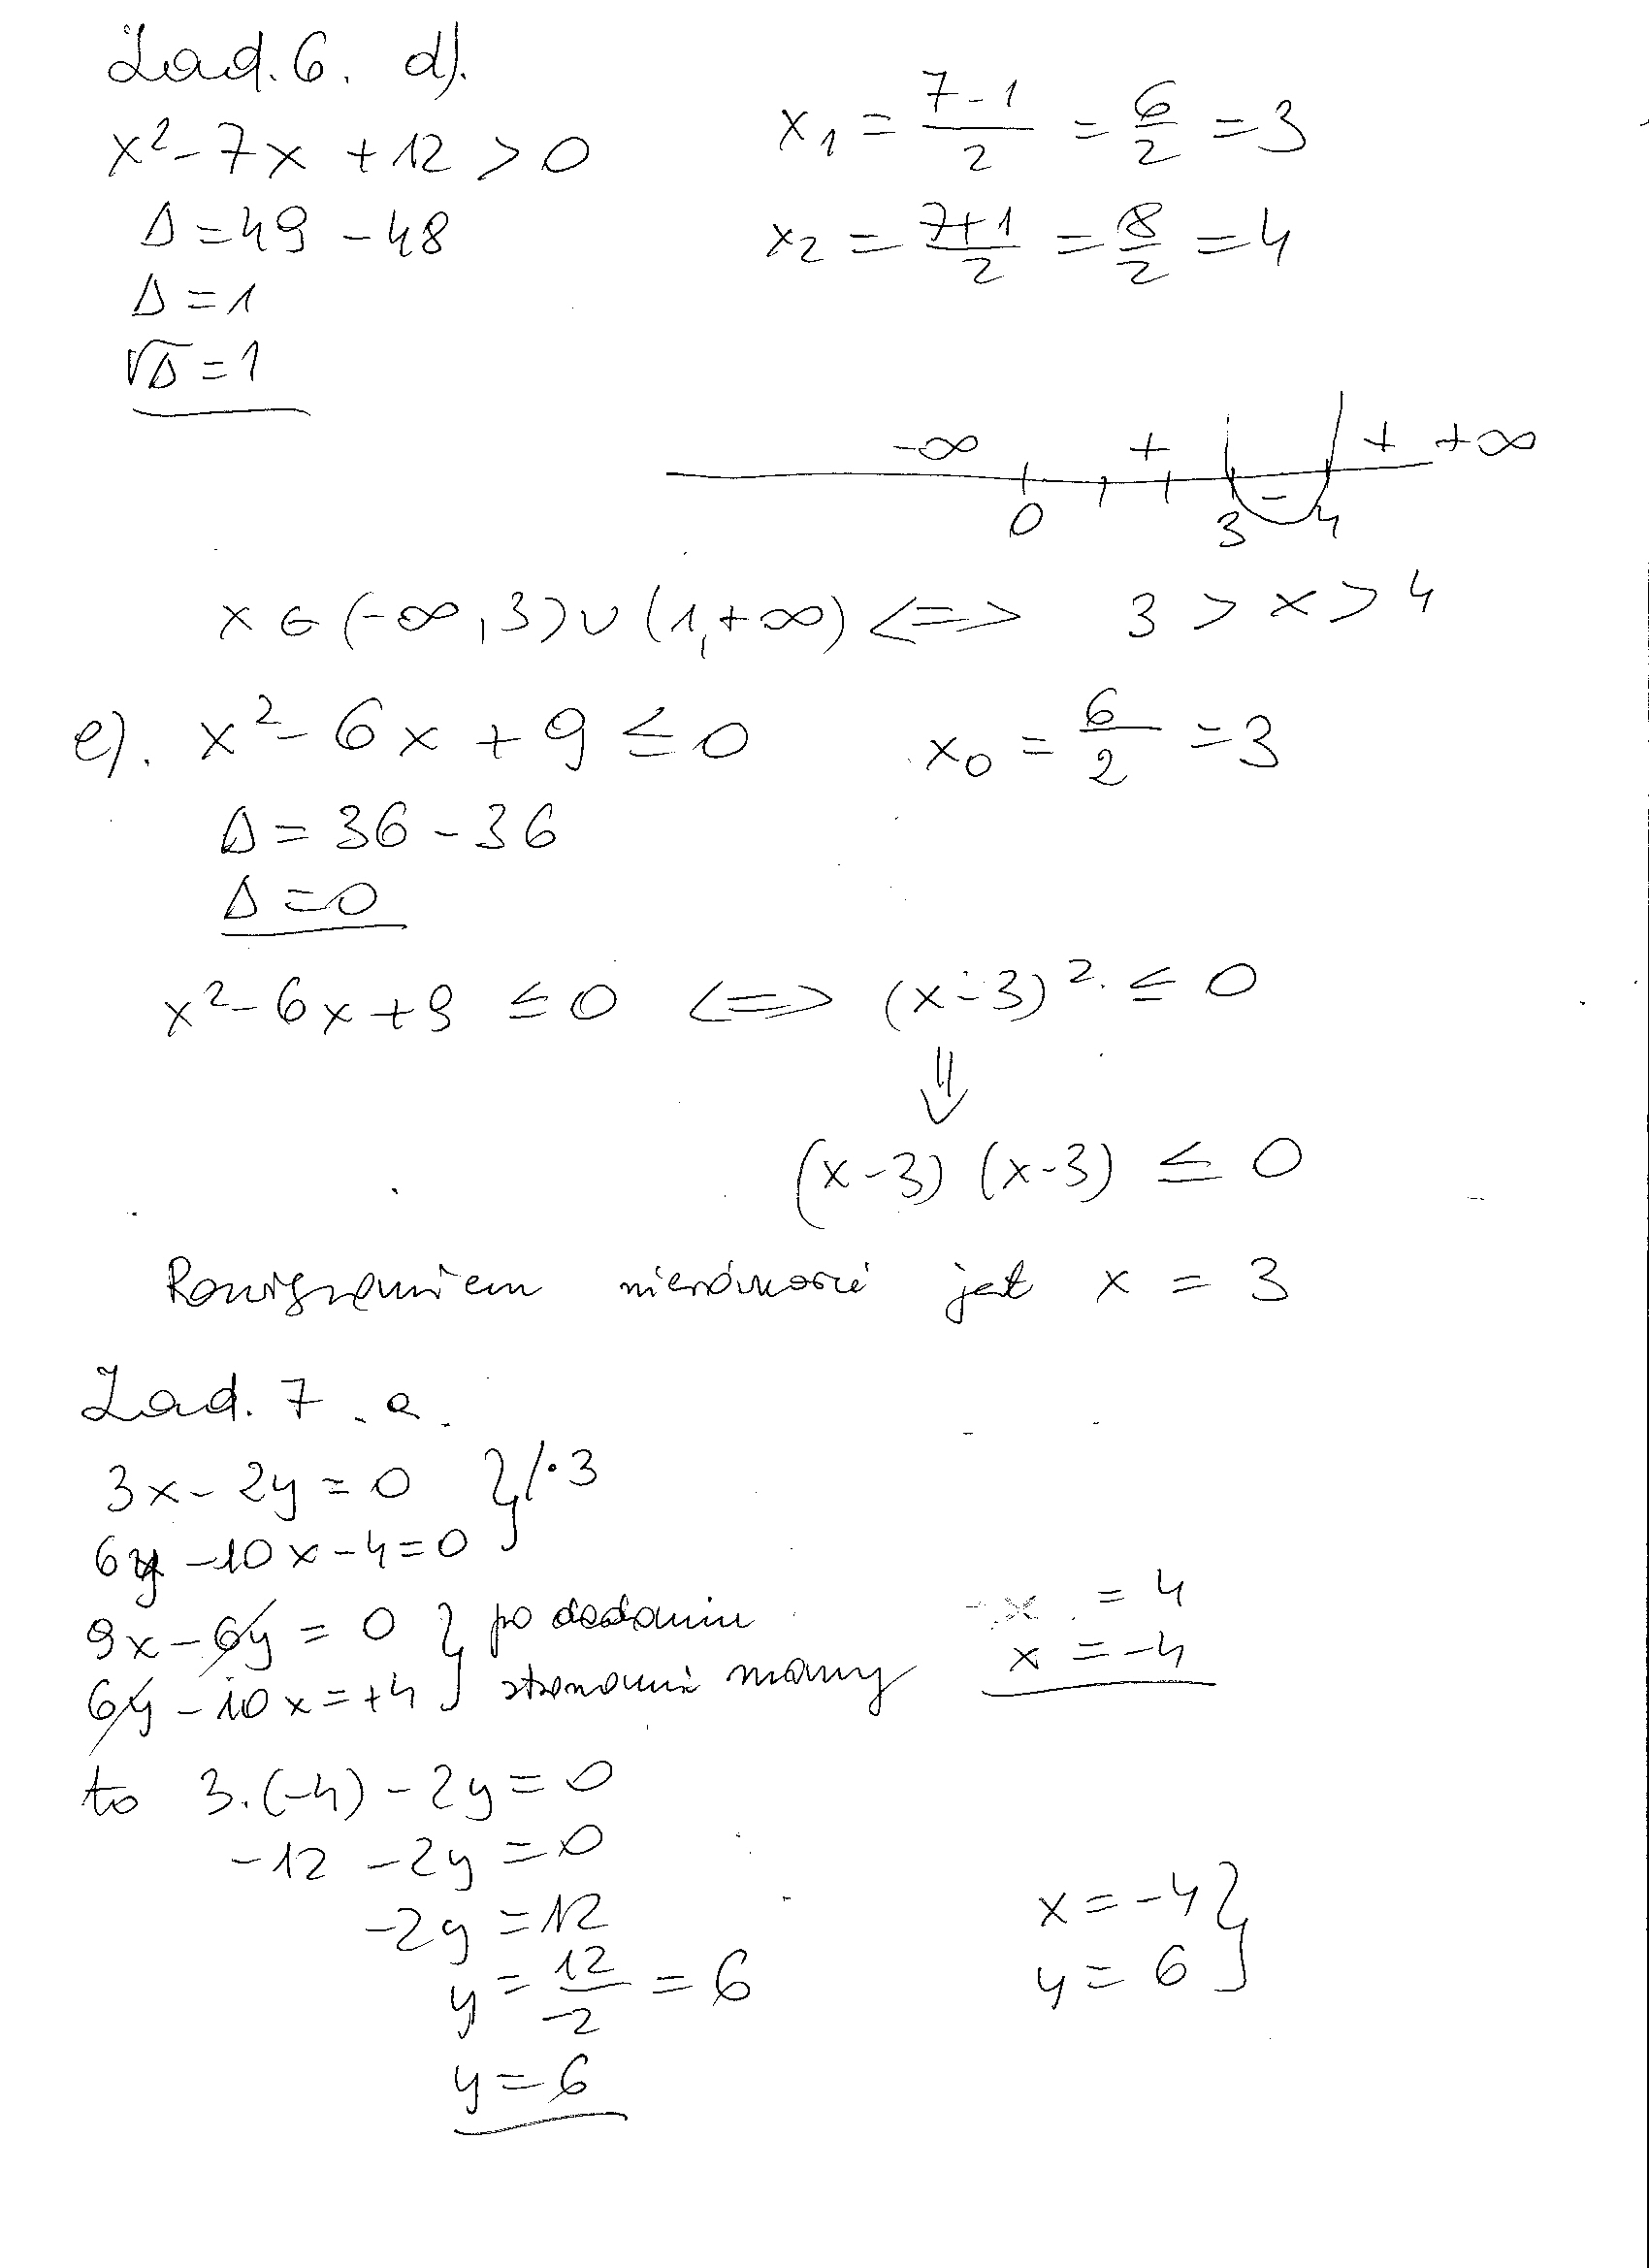 Zad. 6. d).
x² - 7x + 12 > 0
Δ = 49 - 48
Δ = 1
√Δ = 1
x₁ = (7 - 1)/2 = 6/2 = 3
x₂ = (7 + 1)/2 = 8/2 = 4
-∞ + + +∞
0 3 - 4
x ∈ (-∞, 3) ∪ (1, +∞) <=> 3 > x > 4
e). x² - 6x + 9 ≤ 0 x₀ = 6/2 = 3
Δ = 36 - 36
Δ = 0
x² - 6x + 9 ≤ 0 <=> (x - 3)² ≤ 0
⇓
(x - 3) (x - 3) ≤ 0
Rozwiązaniem nierówności jest x = 3
Zad. 7. a.
3x - 2y = 0 } / · 3
6y - 10x - 4 = 0
9x - 6y = 0 } po dodaniu
6y - 10x = +4 stronami mamy
-x = 4
x = -4
to 3 · (-4) - 2y = 0
-12 - 2y = 0
-2y = 12
y = 12/-2 = 6
y = 6
x = -4 }
y = 6